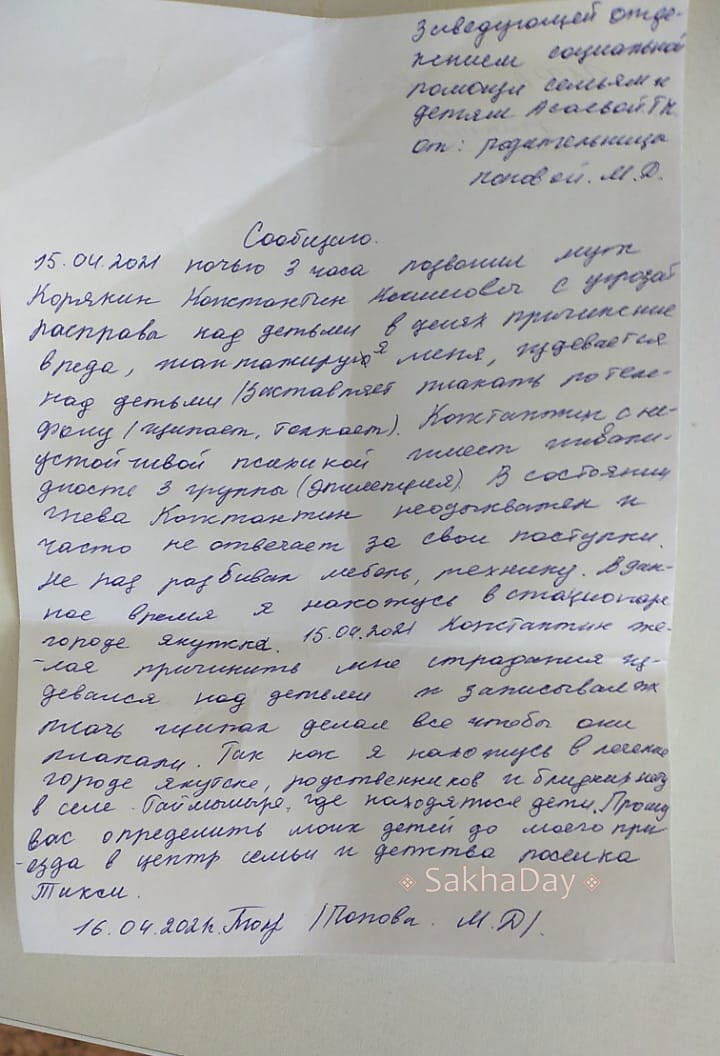 Заведующей отде-
лением социальной
помощи семьям и
детям Асаевой Т.К.
от: родительницы
Поповой. М.Д.
Сообщаю.
15.04.2021 ночью 3 часа позвонил муж
Корякин Константин с угрозой
расправа над детьми в целях причинение
вреда, шантажируя меня, издевается
над детьми /Заставляет плакать по теле-
фону / щипает, толкает). Константин с не-
устойчивой психикой имеет инвали-
дность 3 группы (эпилепсия). В состоянии
гнева Константин неадыкватен и
часто не отвечает за свои поступки.
Не раз разбивал мебель, технику. В дан-
ное время я нахожусь в стационаре
городе Якутска. 15.04.2021 Константин же-
-лая причинить мне страдания из-
девался над детьми и записывал их
плачь щипал делал все чтобы они
плакали. Так как я нахожусь в
городе Якутске, родственников и близких нету
в селе Таймылыр, где находяться дети. Прошу
вас определить моих детей до моего при-
-езда в центр семьи и детства поселка
Тикси.
16.04.2021г. /Попова. М.Д/.
SakhaDay